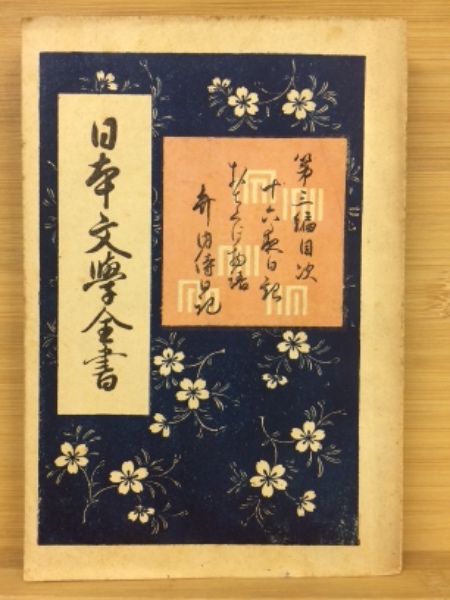 第三編目次
十六夜日記
おちくぼ物語
弁内侍日記
日本文學全書